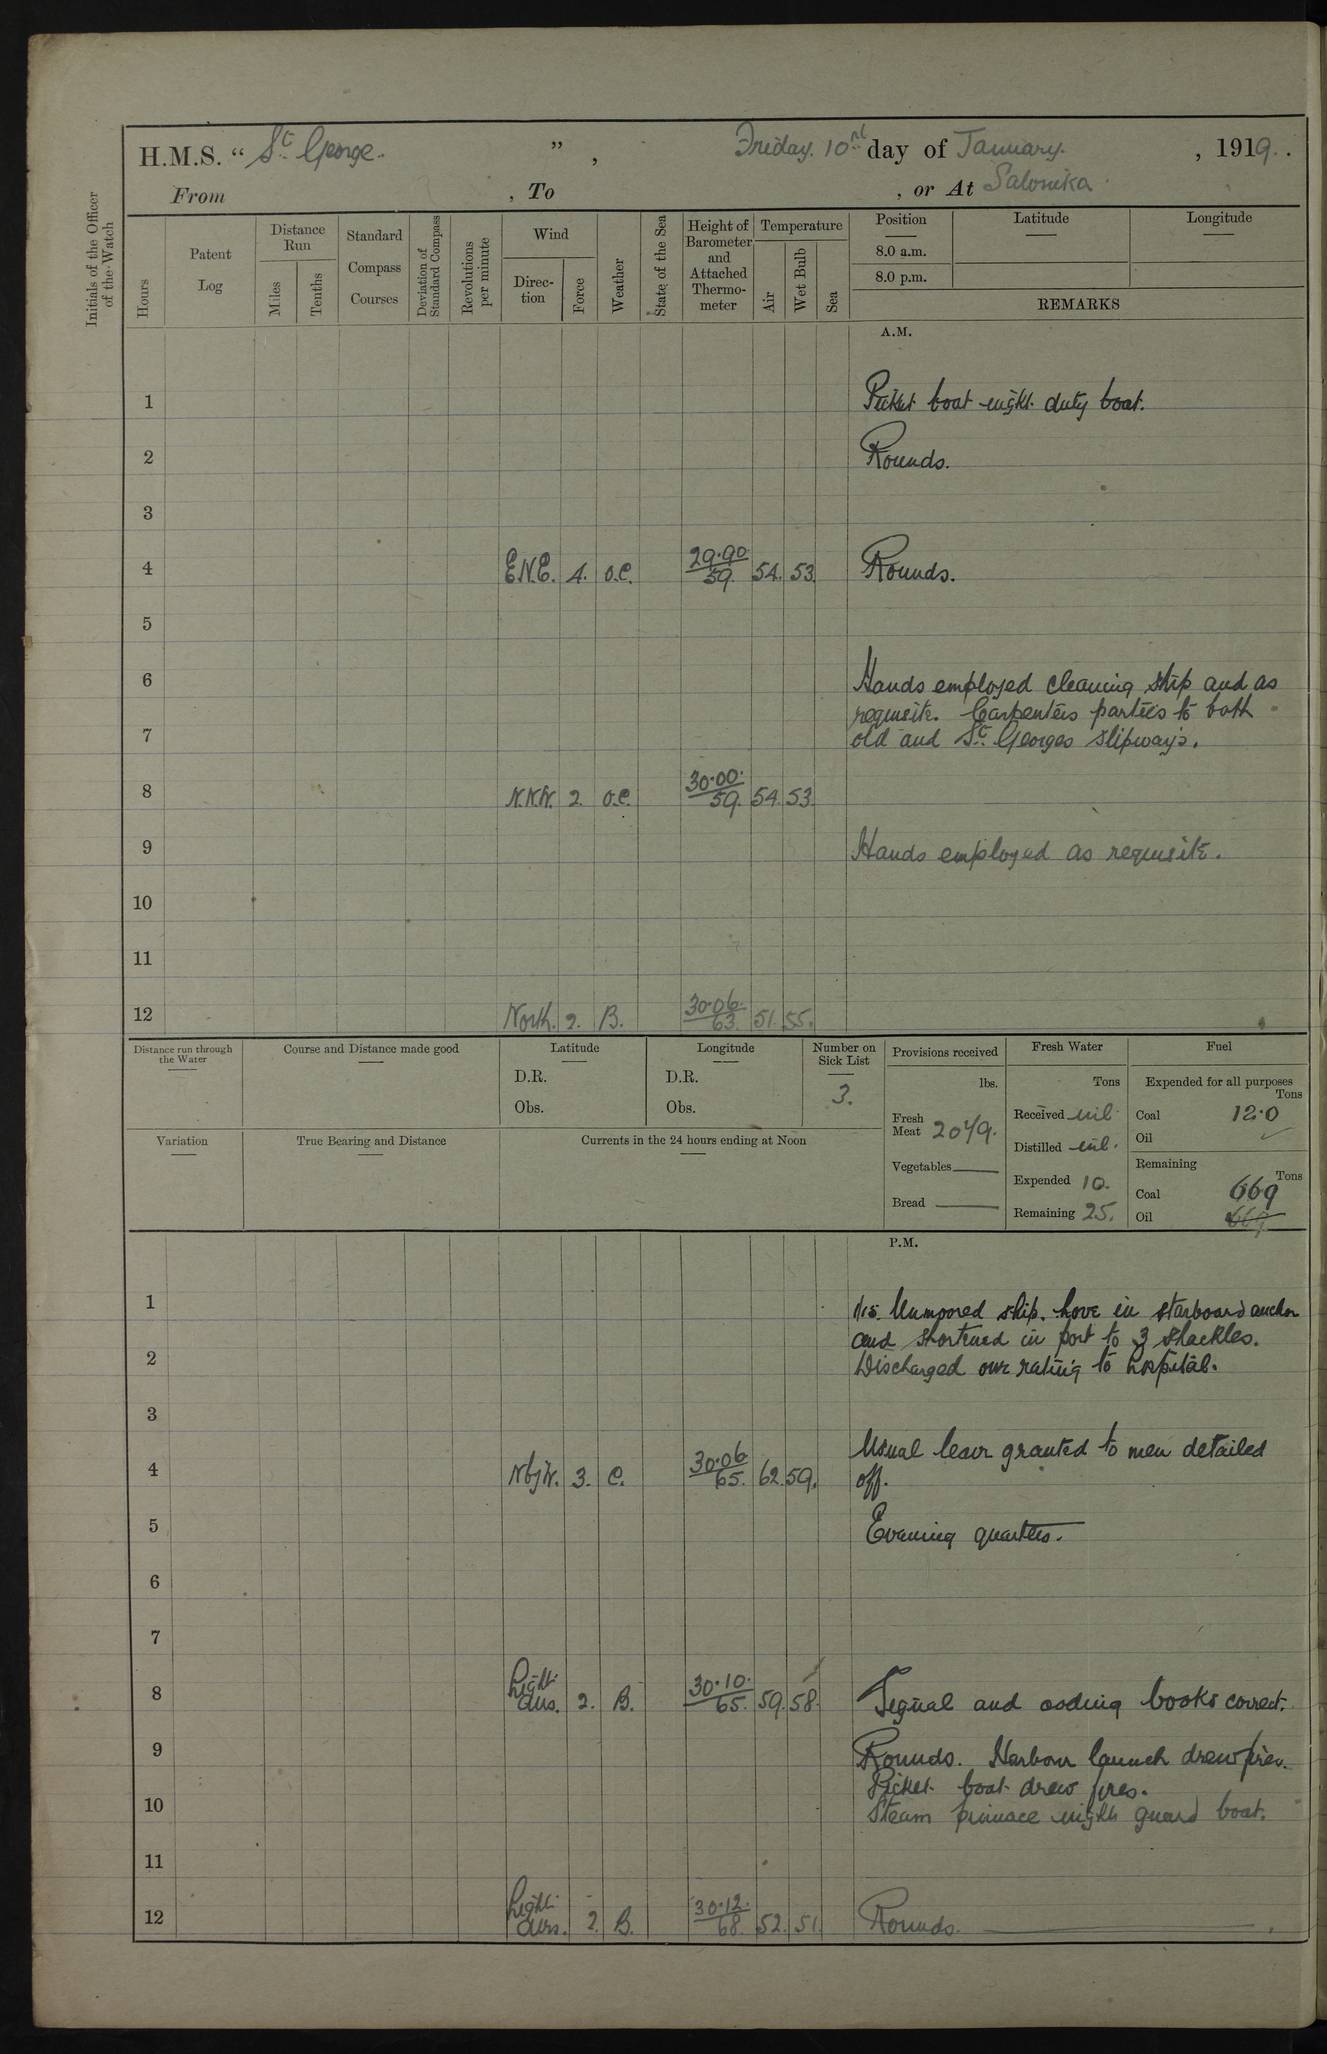 H.M.S. “ St. George. ” , Friday. 10nd day of January. , 1919. .
From , To , or At Salonika.
Initials of the Officer of the Watch
Hours
Patent Log
Distance Run
Miles
Tenths
Standard Compass Courses
Deviation of Standard Compass
Revolutions per minute
Wind
Direction
Force
Weather
State of the Sea
Height of Barometer and Attached Thermometer
Temperature
Air
Wet Bulb
Sea
Position Latitude Longitude
8.0 a.m.
8.0 p.m.
REMARKS
A.M.
1 Picket boat night duty boat.
2 Rounds.
3
4 E.N.E. 4. o.c. 29.90 59. 54. 53. Rounds.
5
6 Hands employed cleaning ship and as
requisite. Carpenters parties to both
7 old and St. Georges slipways.
8 N.N.W. 2. o.c. 30.00. 59. 54. 53.
9 Hands employed as requisite.
10
11
12 North. 2. B. 30.06. 63. 51. 55.
Distance run through the Water
Course and Distance made good
Latitude
D.R.
Obs.
Longitude
D.R.
Obs.
Number on Sick List
3.
Variation
True Bearing and Distance
Currents in the 24 hours ending at Noon
Provisions received
lbs.
Fresh Meat
Vegetables
Bread
Fresh Water
Tons
Received nil.
Distilled nil.
Expended 10.
Remaining 25.
Fuel
Expended for all purposes
Tons
Coal 12.0
Oil
Remaining
Tons
Coal 669
Oil
P.M.
1 1/15. Unmoored ship. hove in starboard anchor
and shortened in port to 3 shackles.
2 Discharged one rating to hospital.
3
Usual leave granted to men detailed
4 N by W. 3. C. 30.06 65. 62. 59. off.
5 Evening quarters.
6
7
8 Light airs. 2. B. 30.10. 65. 59. 58. Signal and coding books correct.
9 Rounds. Harbour launch drew fires.
Picket boat drew fires.
10 Steam pinnace night guard boat.
11
12 Light airs. 2. B. 30.12. 68. 52. 51. Rounds.